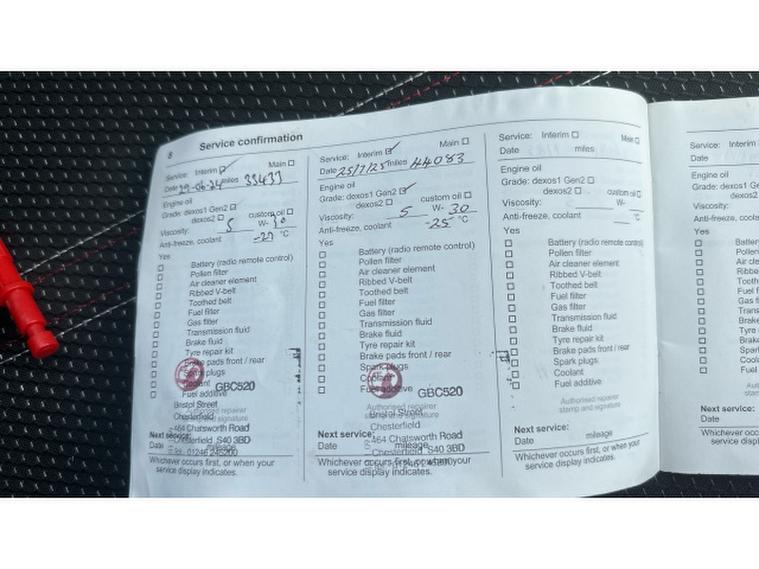 8 Service confirmation
Service: Interim ☑ Main ☐
Date 29-06-24 miles 33433
Engine oil
Grade: dexos1 Gen2 ☑
dexos2 ☐ custom oil ☐
Viscosity: 5 W- 30
Anti-freeze, coolant -27 °C
Yes
☐ Battery (radio remote control)
☐ Pollen filter
☐ Air cleaner element
☐ Ribbed V-belt
☐ Toothed belt
☐ Fuel filter
☐ Gas filter
☐ Transmission fluid
☐ Brake fluid
☐ Tyre repair kit
☐ Brake pads front / rear
☐ Spark plugs
☐ Coolant GBC520
☐ Fuel additive
Authorised repairer
stamp and signature
Bristol Street
Chesterfield
464 Chatsworth Road
Chesterfield S40 3BD
Next service:
Date mileage
Whichever occurs first, or when your
service display indicates.
Service: Interim ☑ Main ☐
Date 25/7/25 miles 44083
Engine oil
Grade: dexos1 Gen2 ☑
dexos2 ☐ custom oil ☐
Viscosity: 5 W- 30
Anti-freeze, coolant -25 °C
Yes
☐ Battery (radio remote control)
☐ Pollen filter
☐ Air cleaner element
☐ Ribbed V-belt
☐ Toothed belt
☐ Fuel filter
☐ Gas filter
☐ Transmission fluid
☐ Brake fluid
☐ Tyre repair kit
☐ Brake pads front / rear
☐ Spark plugs
☐ Coolant
☐ Fuel additive GBC520
Authorised repairer
stamp and signature
Bristol Street
Chesterfield
464 Chatsworth Road
Chesterfield S40 3BD
Next service:
Date mileage
Whichever occurs first, or when your
service display indicates.
Service: Interim ☐ Main ☐
Date miles
Engine oil
Grade: dexos1 Gen2 ☐
dexos2 ☐ custom oil ☐
Viscosity: W-
Anti-freeze, coolant °C
Yes
☐ Battery (radio remote control)
☐ Pollen filter
☐ Air cleaner element
☐ Ribbed V-belt
☐ Toothed belt
☐ Fuel filter
☐ Gas filter
☐ Transmission fluid
☐ Brake fluid
☐ Tyre repair kit
☐ Brake pads front / rear
☐ Spark plugs
☐ Coolant
☐ Fuel additive
Authorised repairer
stamp and signature
Next service:
Date mileage
Whichever occurs first, or when your
service display indicates.
Service: Interim
Date
Engine oil
Grade: dexos1 Gen2
Viscosity:
Anti-freeze, coolant
Yes
Next service:
Date